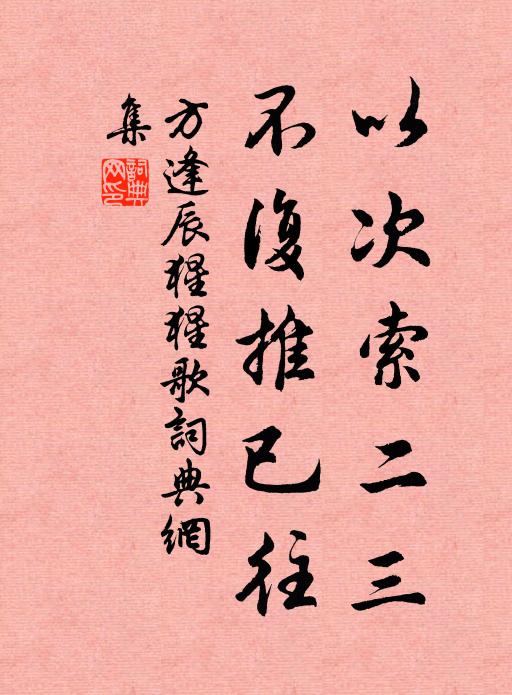 以次索二三
不復推已往
方逢辰猩猩歌詞典網
集
詞典
网印